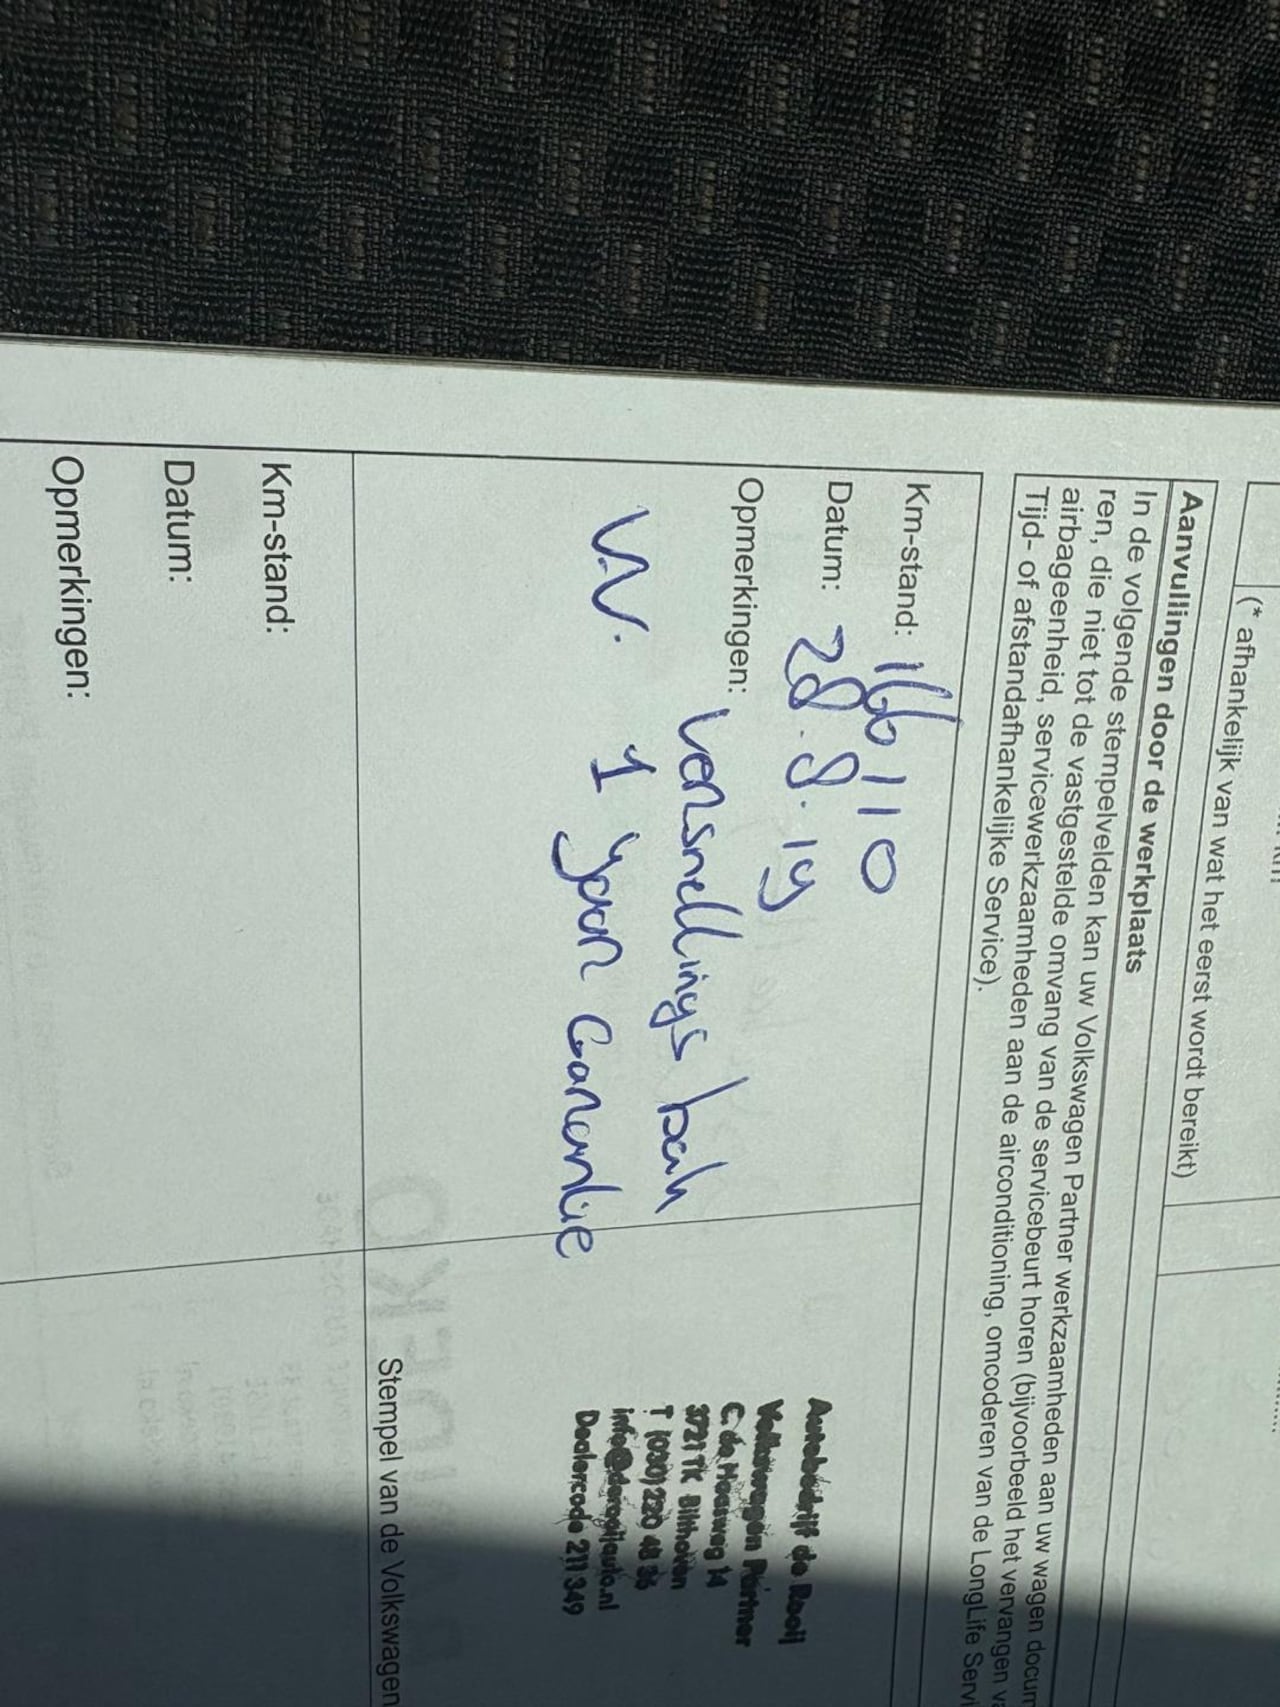 (* afhankelijk van wat het eerst wordt bereikt)
Aanvullingen door de werkplaats
In de volgende stempelvelden kan uw Volkswagen Partner werkzaamheden aan uw wagen docum
ren, die niet tot de vastgestelde omvang van de servicebeurt horen (bijvoorbeeld het vervangen v
airbageenheid, servicewerkzaamheden aan de airconditioning, omcoderen van de LongLife Servi
Tijd- of afstandafhankelijke Service).
Km-stand: 166110
Datum: 28.8.19
Opmerkingen: Versnellings bak
VV. 1 Jaar Garantie
Autobedrijf de Rooij
Volkswagen Partner
C. de Haasweg 14
3721 TK Bilthoven
T (030) 220 48 36
info@derooijauto.nl
Dealercode 211 349
Stempel van de Volkswagen
Km-stand:
Datum:
Opmerkingen: